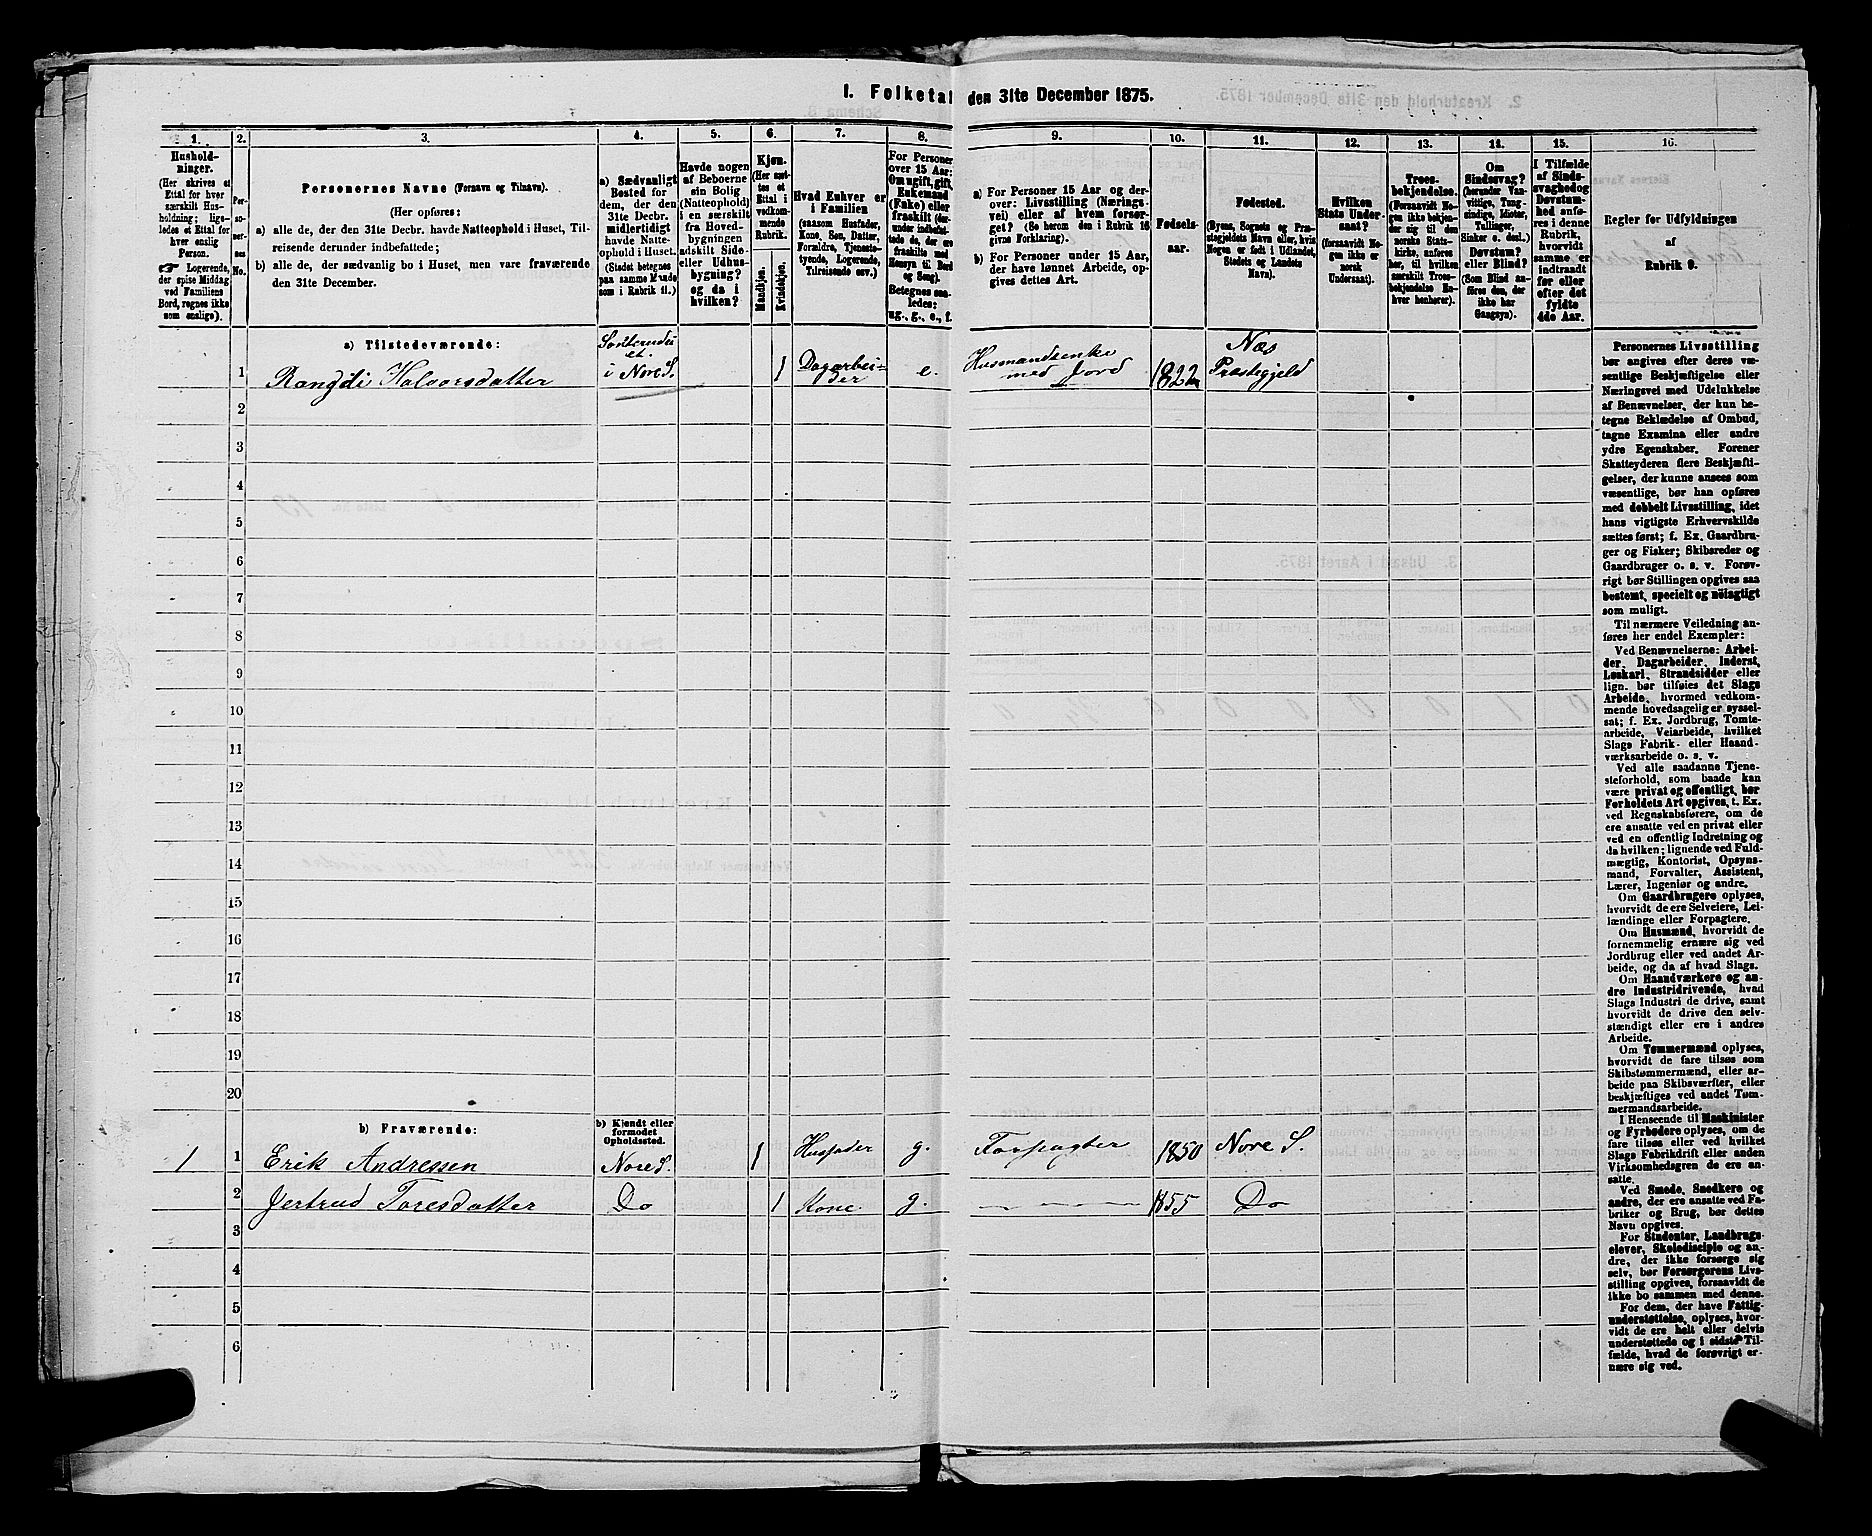 I. Folketal den 31te December 1875.
1. 2. 3. 4. 5. 6. 7. 8. 9. 10. 11. 12. 13. 14. 15. 16.
Hushold-
ninger.
(Her skrives et
Ettal for hver
særskilt Hus-
holdning; lige-
ledes et Ettal for
hver enslig
Person.
☞ Logerende,
der spise Middag
ved Familiens
Bord, regnes ikke
som enslige).
Per-
so-
ner-
nes
No.
Personernes Navne (Fornavn og Tilnavn).
(Her opføres:
a) alle de, der den 31te Decbr. havde Natteophold i Huset, Til-
reisende derunder indbefattede;
b) alle de, der sædvanlig bo i Huset, men vare fraværende
den 31te December.
a) Sædvanligt
Bosted for
dem, der den
31te Decbr.
midlertidigt
havde Natte-
ophold i Huset.
(Stedet betegnes
paa samme Maade
som i Rubrik 11.)
Havde nogen
af Beboerne
sin Bolig
(Natteophold)
i en særskilt
fra Hoved-
bygningen
adskilt Side-
eller Udhus-
bygning?
og da i
hvilken?
Kjøn.
(Her sæt-
tes et
Ettal i
vedkom-
mende
Rubrik.
Mandkjøn.
Kvindekjøn.
Hvad Enhver er
i Familien
(saasom Husfader,
Kone, Søn, Datter,
Forældre, Tjeneste-
tyende, Logerende,
Tilreisende osv.)
For Personer
over 15 Aar:
Om ugift, gift,
Enkemand
(Enke) eller
fraskilt (der-
under indbefat-
tede de, der ere
fraskilte med
Hensyn til Bord
og Seng).
Betegnes saa-
ledes:
ug., g., e., f.
a) For Personer 15 Aar og der-
over: Livsstilling (Nærings-
vei) eller af hvem forsør-
get? (Se herom den i Rubrik 16
givne Forklaring).
b) For Personer under 15 Aar,
der have lønnet Arbeide, op-
gives dettes Art.
Fødsels-
aar.
Fødested.
(Byens, Sognets og Præ-
stegjeldets Navn eller, hvis
Nogen er født i Udlandet,
Stedets og Landets
Navn).
Hvilken
Stats Under-
saat?
(forsaavidt No-
gen ikke er
norsk
Undersaat).
Troes-
bekjendelse.
(Forsaavidt No-
gen ikke bekjen-
der sig til den
norske Stats-
kirke, anføres
her, til hvilken
særskilt Tros-
bekjendelse En-
hver henhører).
Om
Sindssvag?
(herunder Van-
vittige, Tung-
sindige, Idioter,
Tullinger,
Sinker o. desl.)
Døvstum?
eller Blind?
(Som Blinde an-
føres den, der
ikke har
Gangsyn).
I Tilfælde
af Sinds-
svaghed og
Døvstum-
hed anfø-
res i denne
Rubrik,
hvorvidt
samme er
indtraadt
før eller
efter det
fyldte
4de Aar.
Regler for Udfyldningen
af
Rubrik 9.
a) Tilstedeværende:
1 Rangdi Halvorsdatter i Nore S. 1 Dagarbei-
der e. Husmandsenke
med Jord 1822 Næs
Præstegjeld
2
3
4
5
6
7
8
9
10
11
12
13
14
15
16
17
18
19
20
b) Fraværende:
b) Kjendt eller
formodet
Opholdssted.
1 1 Erik Andressen Nore S. 1 Husfader g. Forpagter 1850 Nore S.
2 Jertrud Toresdatter Do 1 Kone g. 1855 Do
3
4
5
6
Personernes Livsstilling
bør angives efter deres væ-
sentlige Beskjæftigelse eller
Næringsvei med Udelukkelse
af Benævnelser, der kun be-
tegne Beklædelse af Ombud,
tagne Examina eller andre
ydre Egenskaber. Forener
Skatteyderen flere Beskjæfti-
gelser, der kunne ansees som
væsentlige, bør han opføres
med dobbelt Livsstilling, idet
hans vigtigste Erhvervskilde
sættes først; f. Ex. Gaardbru-
ger og Fisker; Skibsreder og
Gaardbruger o. s. v. Forøv-
rigt bør Stillingen opgives saa
bestemt, specielt og nøiagtigt
som muligt.
Til nærmere Veiledning an-
føres her endel Exempler:
Ved Benævnelserne: Arbei-
der, Dagarbeider, Inderst,
Løskarl, Strandsidder eller
lign. bør tilføies det Slags
Arbeide, hvormed vedkom-
mende hovedsagelig er syssel-
sat; f. Ex. Jordbrug, Tomte-
arbeide, Veiarbeide, hvilket
Slags Fabrik- eller Haand-
værksarbeide o. s. v.
Ved alle saadanne Tjene-
steforhold, som baade kan
være privat og offentligt, bør
Forholdets Art opgives, t. Ex.
ved Regnskabsførere, om de
ere ansatte ved en privat eller
ved en offentlig Indretning og
da hvilken; lignende ved Fuld-
mægtig, Kontorist, Opsyns-
mand, Forvalter, Assistent,
Lærer, Ingeniør og andre.
Om Gaardbrugere oplyses,
hvorvidt de ere Selveiere, Lei-
lændinge eller Forpagtere.
Om Husmænd, hvorvidt de
fornemmelig ernære sig ved
Jordbrug eller ved andet Ar-
beide, og da af hvad Slags.
Om Haandværkere og an-
dre Industridrivende, hvad
Slags Industri de drive, samt
hvorvidt de drive den selv-
stændigt eller ere i andres
Arbeide.
Om Tømmermænd oplyses,
hvorvidt de fare tilsøs som
Skibstømmermænd, eller ar-
beide paa Skibsværfter, eller
beskjæftiges ved andet Tøm-
mermandsarbeide.
I Henseende til Maskinister
og Fyrbødere oplyses, om de
fare tilsøs eller ved hvilket
Slags Fabrikdrift eller anden
Virksomhedsgren de ere an-
satte.
Ved Smede, Snedkere og
andre, der ere ansatte ved Fa-
briker og Brug, bør dettes
Navn opgives.
For Studenter, Landbrugs-
elever, Skoledisciple og an-
dre, der ikke forsørge sig
selv, bør Forsørgerens Livs-
stilling opgives, forsaavidt de
ikke bo sammen med denne.
For dem, der have Fattig-
understøttelse, oplyses, hvor-
vidt de ere helt eller delvis
understøttede og i sidste Til-
fælde, hvad de forøvrigt er-
nære sig ved.